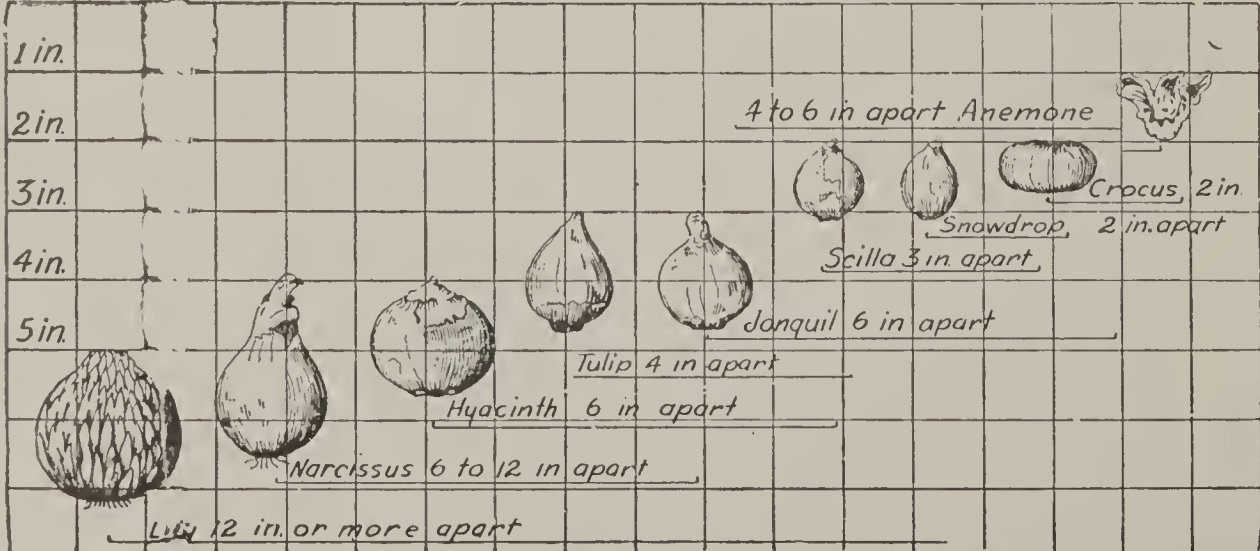 1 in.
2 in.
3 in.
4 in.
5 in.
4 to 6 in apart Anemone
Crocus, 2 in.
2 in. apart
Snowdrop,
Scilla 3 in. apart
Jonquil 6 in apart
Tulip 4 in apart
Hyacinth 6 in apart
Narcissus 6 to 12 in apart
Lily 12 in. or more apart